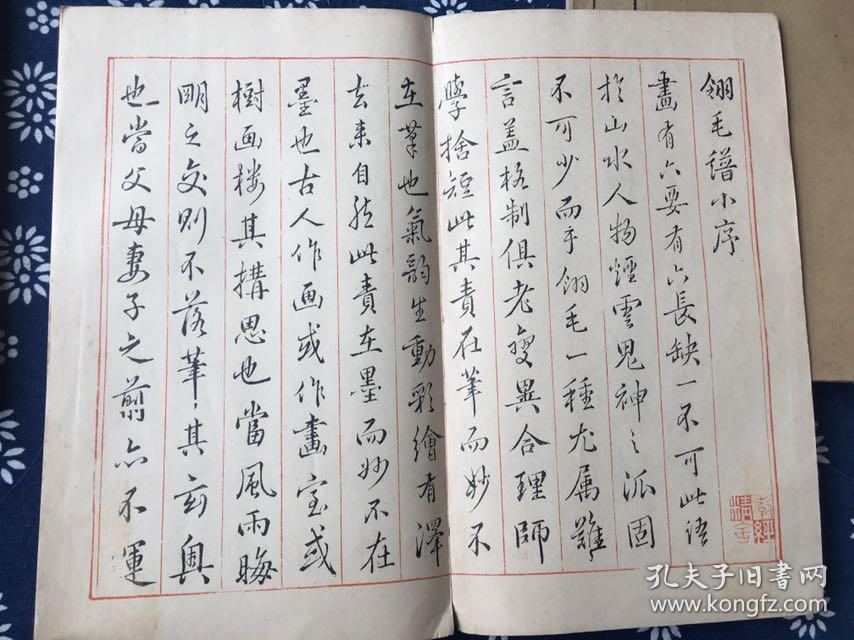 翎毛譜小序
畫有六要有六長缺一不可此語
於山水人物煙雲鬼神之派固
不可少而于翎毛一種尤属難
言盖格制俱老變異合理師
學捨短此其責在筆而妙不
在筆也氣韵生動彩繪有澤
去来自然此責在墨而妙不在
墨也古人作画或作畫室或
樹画楼其搆思也當風雨晦
明之交則不落筆〻其玄奥
也當父母妻子之前亦不運
孔夫子旧書网
www.kongfz.com